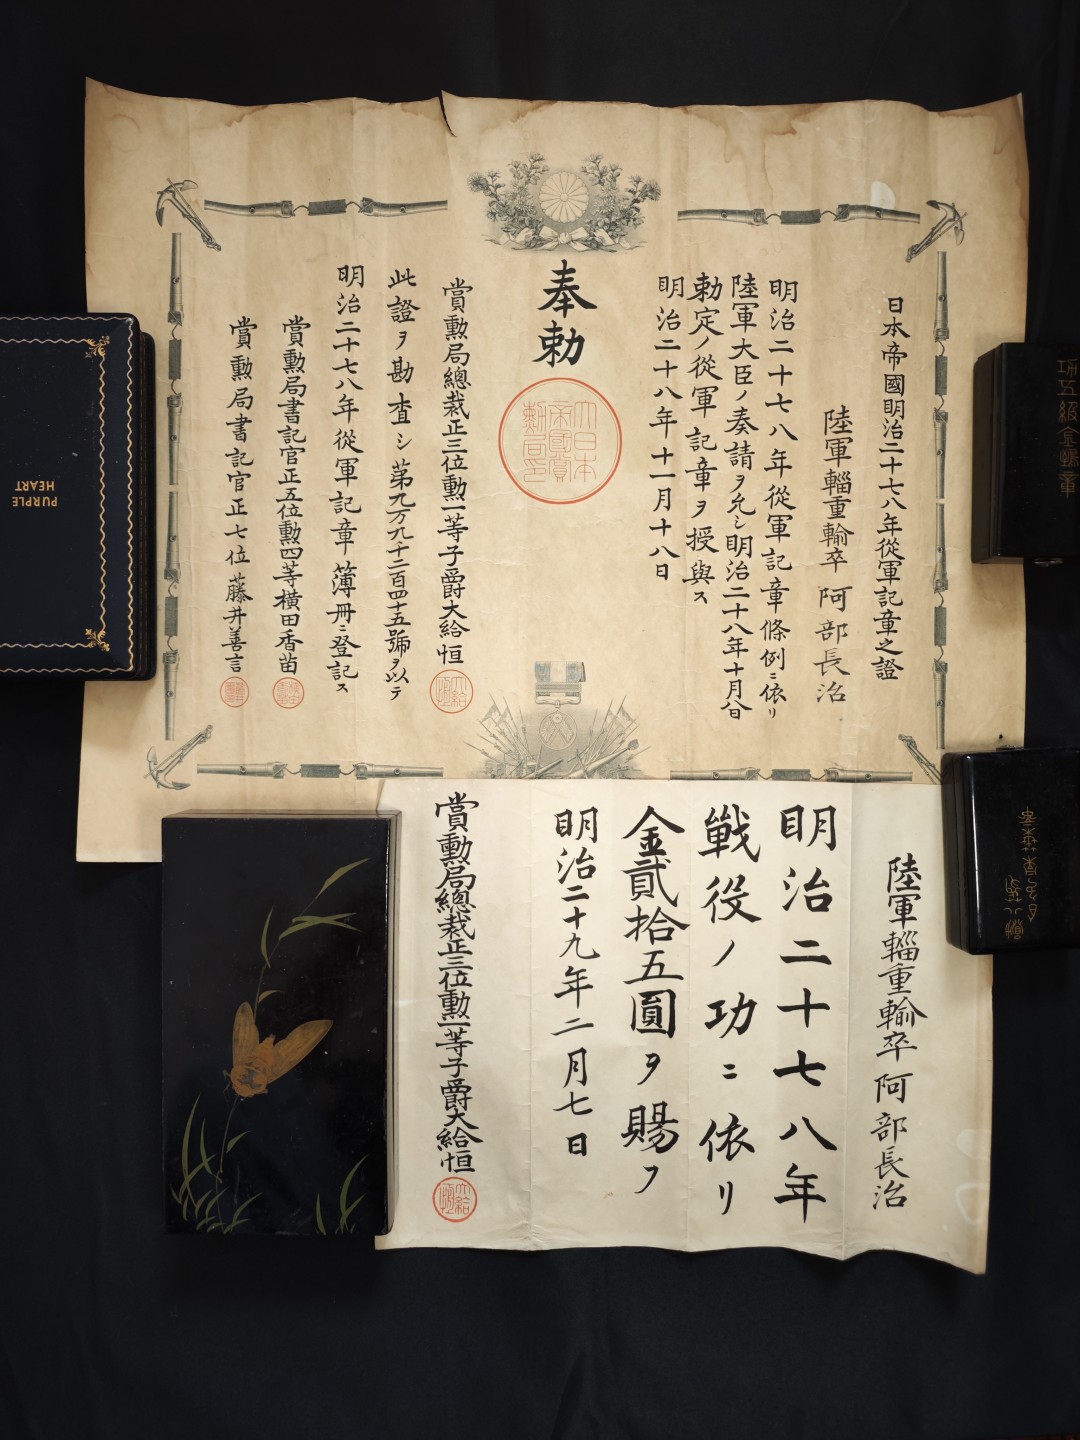 日本帝國明治二十七八年從軍記章之證
陸軍輜重輸卒 阿部長治
明治二十七八年從軍記章條例ニ依リ
陸軍大臣ノ奏請ヲ允シ明治二十八年十月八日
勅定ノ從軍記章ヲ授與ス
明治二十八年十一月十八日
奉勅
大日本
帝國賞
勲局印
賞勲局總裁正三位勲一等子爵大給恒
此證ヲ勘査シ第九万九千二百四十五號ヲ以テ
明治二十七八年從軍記章簿冊ニ登記ス
賞勲局書記官正五位勲四等横田香苗
賞勲局書記官正七位藤井善言
陸軍輜重輸卒 阿部長治
明治二十七八年
戦役ノ功ニ依リ
金貳拾五圓ヲ賜フ
明治二十九年二月七日
賞勲局總裁正三位勲一等子爵大給恒
PURPLE
HEART
功五級金鵄勲章
勲八等
白色桐葉章